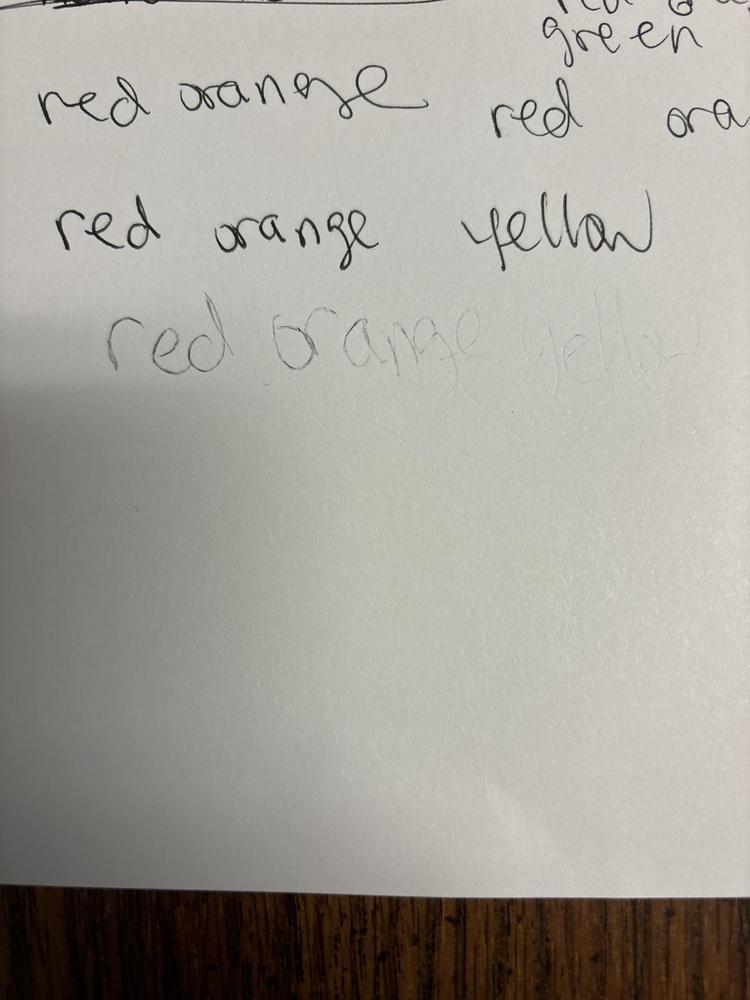 green
red orange red
red orange yellow
red orange yellow